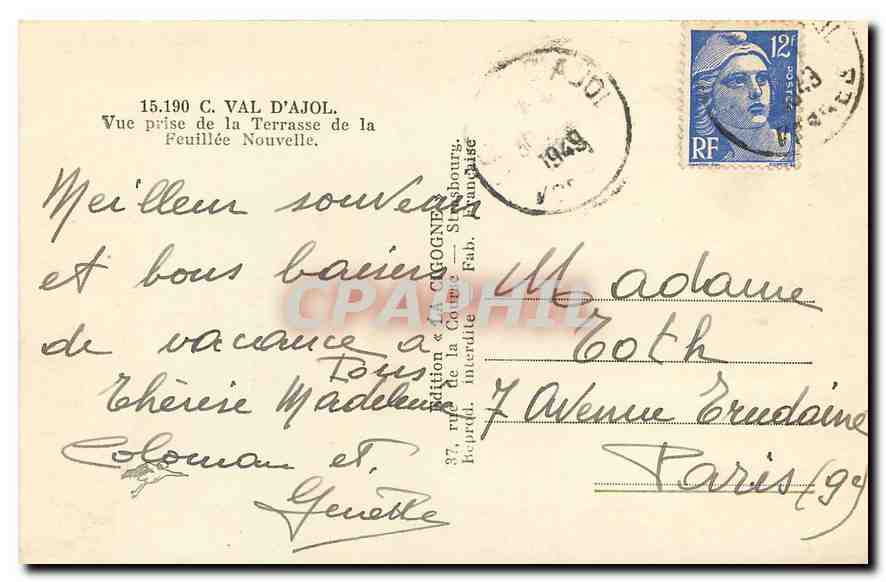 15.190 C. VAL D'AJOL.
Vue prise de la Terrasse de la
Feuillée Nouvelle.
Meilleur souvenir
et bons baisers
de vacance à
Tous
Thérèse Madeleine
Coloman et
Genette
Edition « LA CIGOGNE »
37, rue de la Course — Strasbourg.
Reprod. interdite Fab. Française
AJOL
1949
12F
POSTES
RF
1949
VOSGES
Madame
Toth
7 Avenue Trudaine
Paris (9e)
CPAPHIL